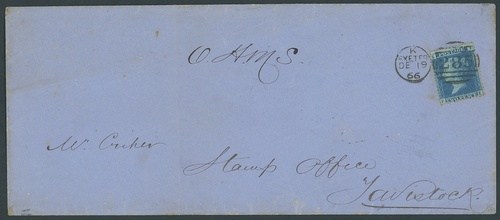 O.H.M.S.
K
EXETER
DE 19
66
POSTAGE
285
TWO PENCE
Mr.
Stamp Office
Tavistock